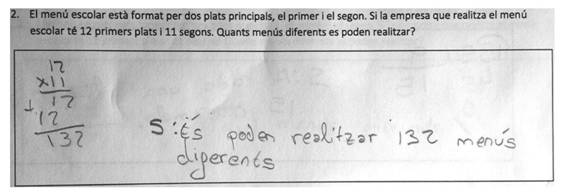 2. El menú escolar està format per dos plats principals, el primer i el segon. Si la empresa que realitza el menú
escolar té 12 primers plats i 11 segons. Quants menús diferents es poden realitzar?
12
x11
12
+ 12
132
S: És poden realitzar 132 menús
diferents